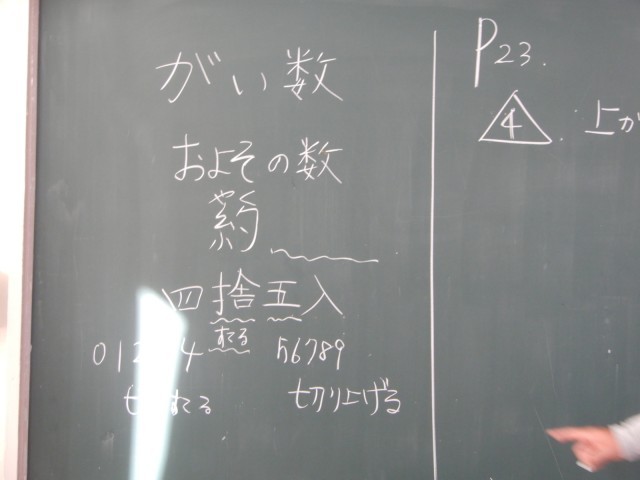 がい数
およその数
約
四捨五入
すてる
0 1 2 4 5 6 7 8 9
すてる 切り上げる
P23.
4. 上が